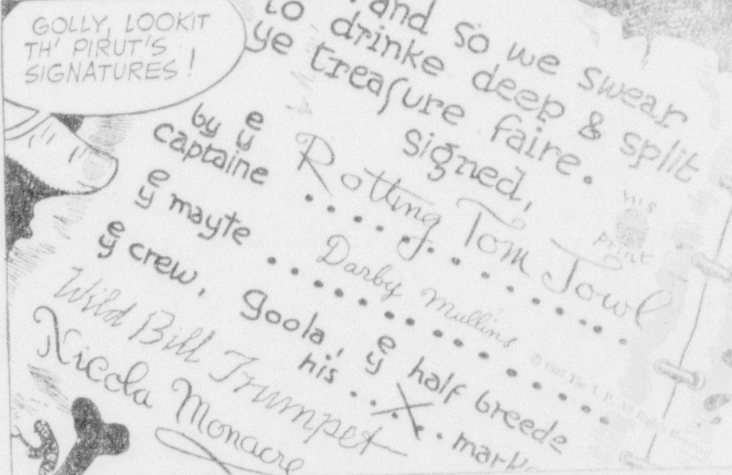 GOLLY, LOOKIT
TH' PIRUT'S
SIGNATURES!
and so we swear
to drinke deep & split
ye treaſure faire.
signed,
by yᵉ
captaine Rotting Tom Jowl
his
print
yᵉ mayte Darby Mullins
yᵉ crew, Goola, yᵉ half breede
his X mark
Wild Bill Trumpet
Nicola Monacre